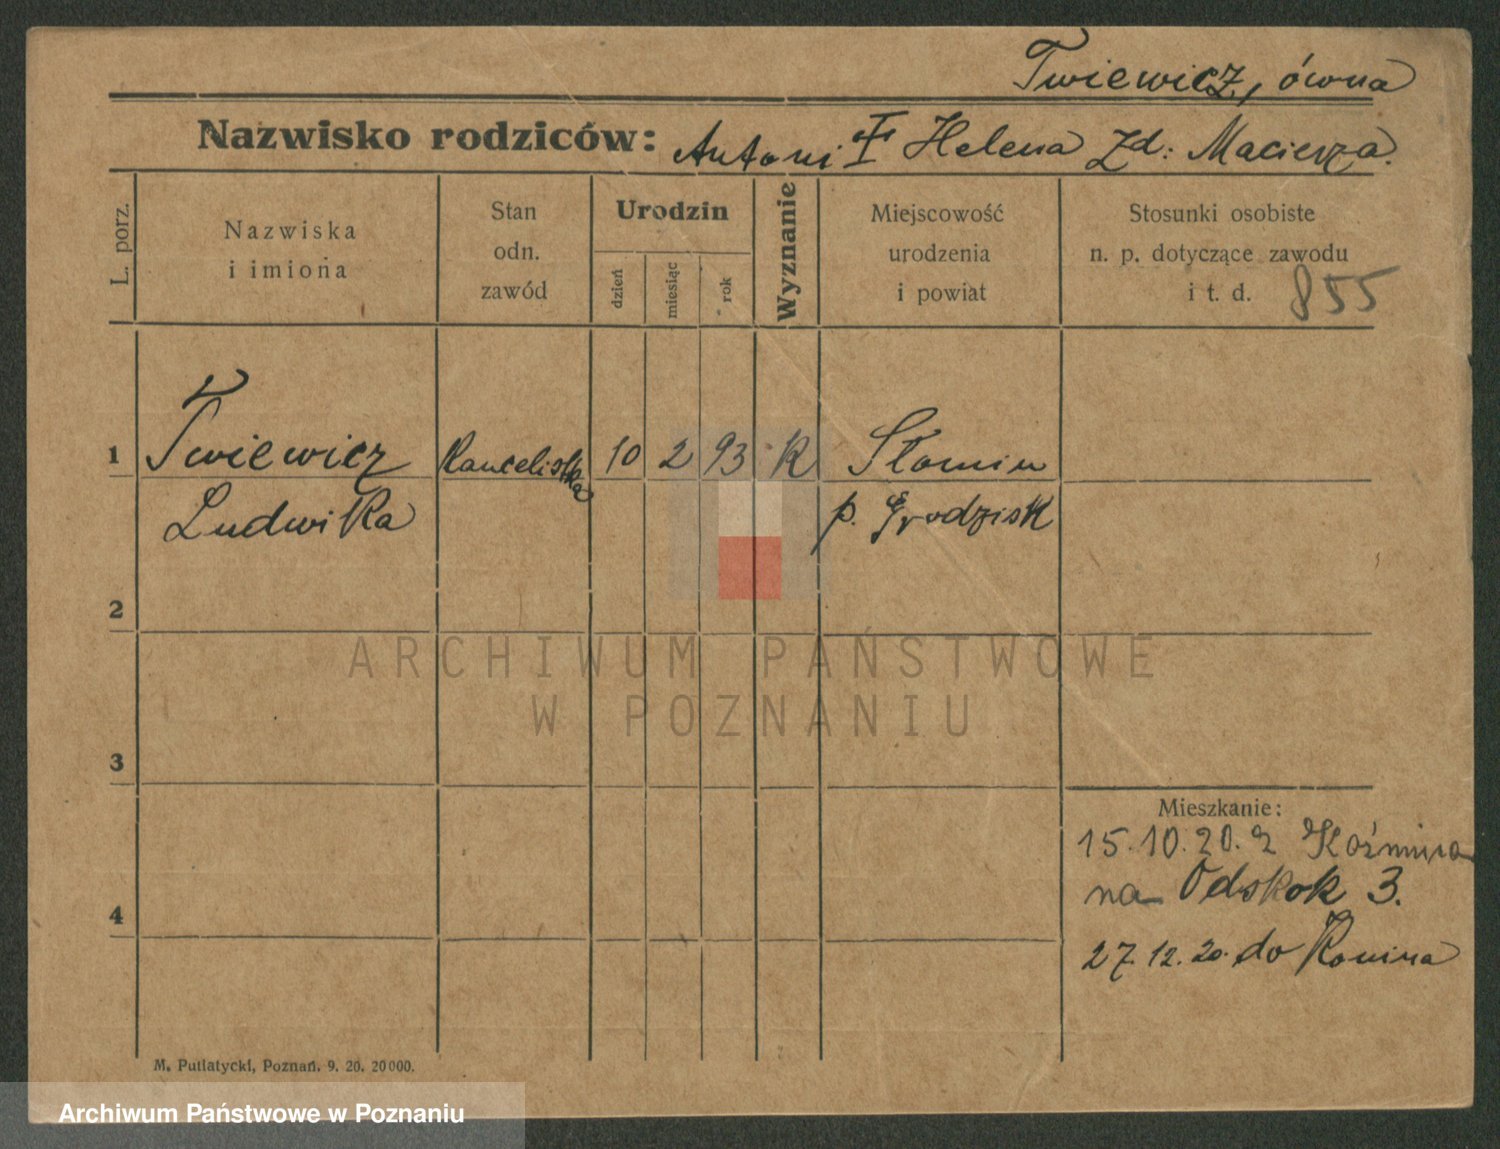 Twiewicz, ówna
Nazwisko rodziców: Antoni Helena Zd: Macierza.
L. porz.
Nazwiska
i imiona
Stan
odn.
zawód
Urodzin
dzień
miesiąc
rok
Wyznanie
Miejscowość
urodzenia
i powiat
Stosunki osobiste
n. p. dotyczące zawodu
i t. d.
855
1 Twiewicz Kancelistka 10 2 93 K Słomin
Ludwika p. Grodzisk
2
3
4
Mieszkanie:
15.10.20. z Koźmina
na Odskok 3.
27.12.20. do Konina
M. Putiatycki, Poznań, 9. 20. 20000.
ARCHIWUM PAŃSTWOWE
W POZNANIU
Archiwum Państwowe w Poznaniu